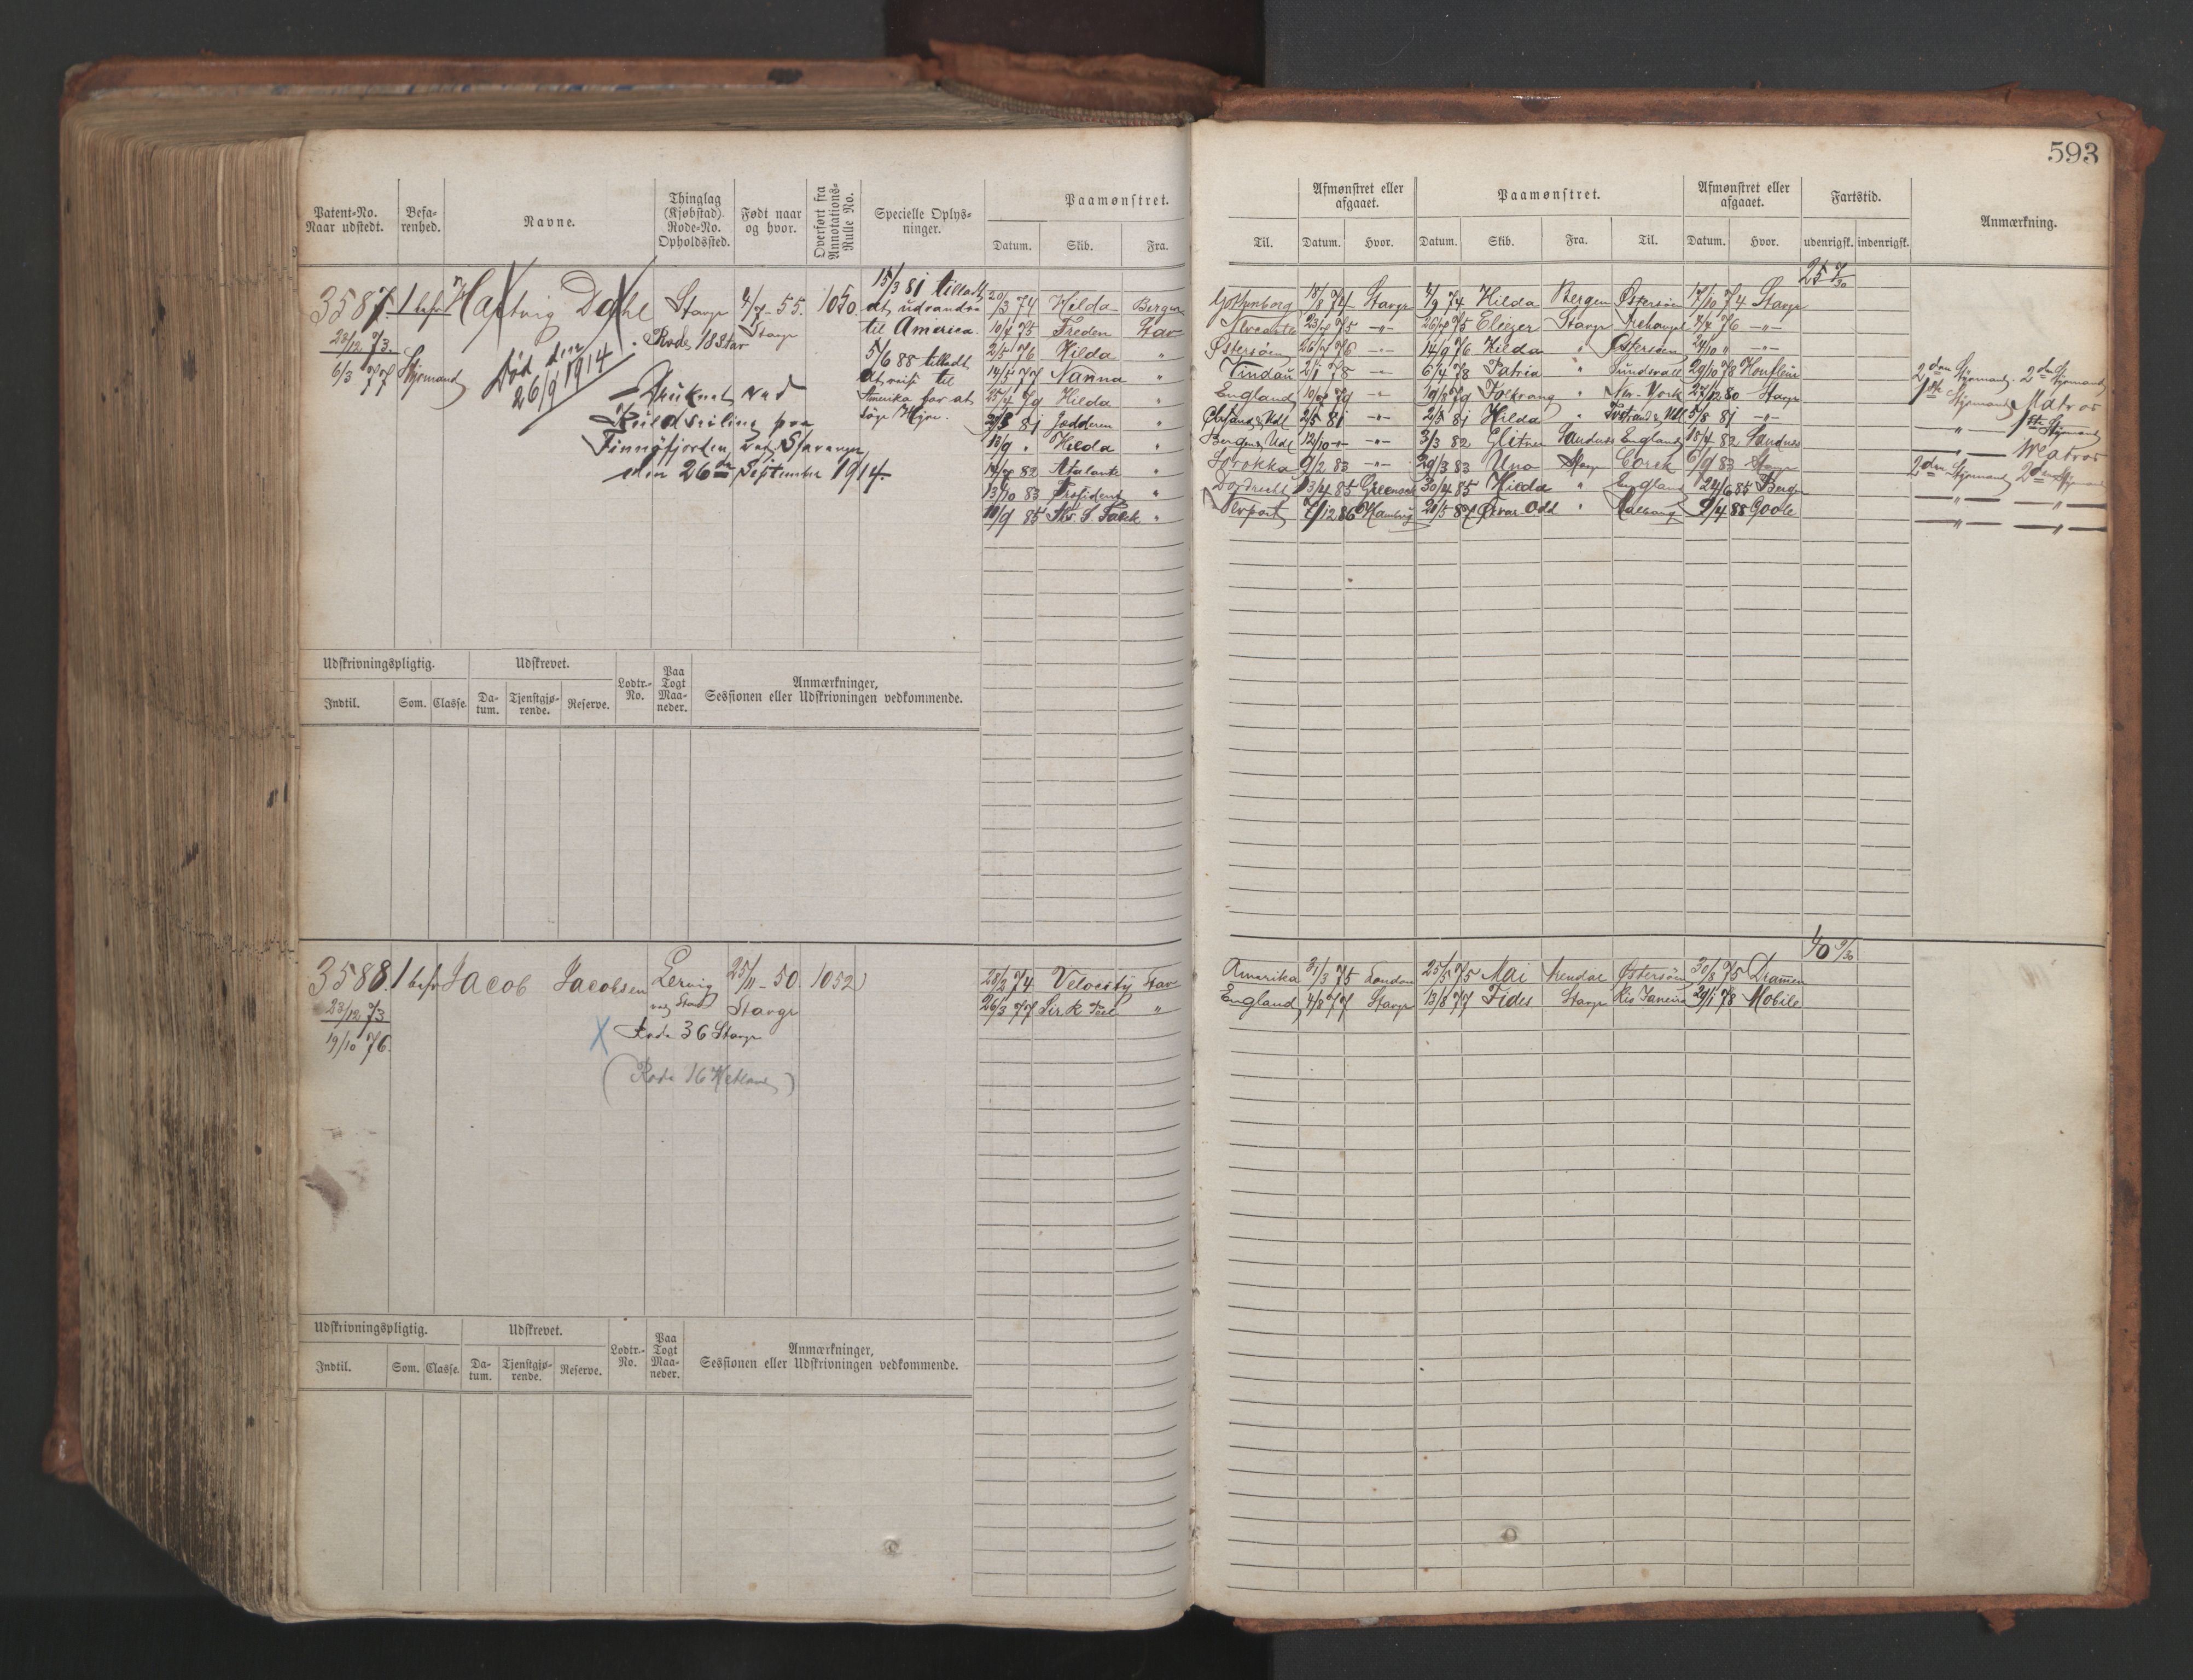 593
Patent-No. Naar udstedt. Befa-renhed. Navne. Thinglag (Kjøbstad). Rode-No. Opholdssted. Født naar og hvor. Overført fra Annotations-Rulle No. Specielle Oplys-ninger. Paamønstret. Datum. Skib. Fra.
Til. Afmønstret eller afgaaet. Datum. Hvor. Paamønstret. Datum. Skib. Fra. Til. Afmønstret eller afgaaet. Datum. Hvor. Fartstid. udenrigsk. indenrigsk. Anmærkning.
25 7/30
3587. 1 bef. Hartvig Dahl Stavgr 4/7-55. Stavgr 1050.
22/12 73.
6/3 77 Styrmand
Rode 18 Stav
Død den 26/9 1914
Druknet ved
Kuldseiling paa
Finnøfjorden ved Stavangr
den 26de September 1914.
15/3 81 tilladt
at udvandre
til America.
5/6 88 tilladt
at reise til
Amerika for at
søge Hyre.
20/3 74 Hilda Bergen Gothenborg 18/8 74 Stavgr 4/9 74 Hilda Bergen Østersøen 17/10 74 Stavgr
10/4 75 Freden Stav 23/7 75 -"- 26/7 75 Eliezer Stavgr Archangel 7/7 76 -"-
2/5 76 Hilda " Østersøen 26/7 76 -"- 14/9 76 Hilda " Østersøen 24/10 " -"-
14/5 77 Nanna " Vindau 2/1 78 -"- 6/4 78 Patria " Sundsvall 29/10 78 Honfleur 2den Styrmand. 2den Styrmand
25/4 79 Hilda " England 10/7 79 -"- 19/8 79 New-York 27/12 80 Stavgr 1ste Styrmand Matros
81 Jædderen " 2/5 81 -"- 2/5 81 Hilda " 5/8 81 -"- -"- 1ste Styrmand
13/9 " Hilda " Bergen & Udl 12/10 " -"- 3/3 82 Glitner Sandnes England 15/4 82 Sandnes -"- Matros
14/7 82 Atalante " 9/2 83 -"- 29/3 83 Uno Stavgr Corsk 6/9 83 Stavgr 2den Styrmand 2den Styrmand
13/10 83 Præsident " Dordrecht 13/4 85 Greenock 30/4 85 Hilda " England 24/6 85 Bergen -"- -"-
10/9 85 S. Falck " Nerport 7/12 86 Hamburg 20/5 87 Ørvar Odd " 9/4 88 Goole -"- -"-
Udskrivningspligtig. Udskrevet. Lodtr.-No. Paa Togt Maa-neder. Anmærkninger, Sessionen eller Udskrivningen vedkommende.
Indtil. Som. Classe. Da-tum. Tjenstgjø-rende. Reserve.
40 9/30
3588. 1 bef. Jacob Jacobsen Lervig ved Stav 25/11-50. Stavgr 1052
23/12 73
19/10 76.
X Rode 36 Stavgr
(Rode 16 Hetland)
28/2 74. Velocity Stav Amerika 31/3 75 London 25/5 75 Mai Arendal Østersøen 30/8 75 Drammen
26/3 77 Sir R. Peel " England 4/8 77 Stavgr 13/8 77 Fides Stavgr Rio Janeiro 29/1 78 Mobile
Udskrivningspligtig. Udskrevet. Lodtr.-No. Paa Togt Maa-neder. Anmærkninger, Sessionen eller Udskrivningen vedkommende.
Indtil. Som. Classe. Da-tum. Tjenstgjø-rende. Reserve.